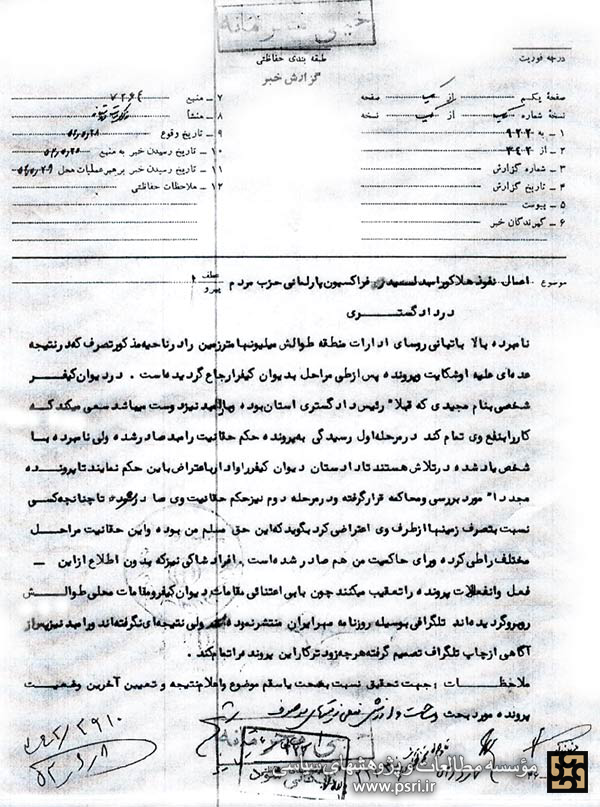 خیلی محرمانه
درجه فوریت
طبقه بندی حفاظتی
گزارش خبر
صفحه یکم از یک صفحه
نسخه شماره یک از یک نسخه
۱ – به ۹۲۲
۲ – از ۳ﻫ۲
۳ – شماره گزارش
۴ – تاریخ گزارش
۵ – پیوست
۶ – گیرندگان خبر
۷ – منبع ۷۲۶۴
۸ – منشأ
۹ – تاریخ وقوع
۱۰ – تاریخ رسیدن خبر به منبع
۱۱ – تاریخ رسیدن خبر برهبر عملیات محل
۱۲ – ملاحظات حفاظتی
موضوع اعمال نفوذ هلاکو رامبد لیدر فراکسیون پارلمانی حزب مردم عطف پیرو
در دادگستری
نامبرده بالا با تبانی روسای ادارات منطقه طوالش میلیونها متر زمین را در ناحیه مذکور تصرف که در نتیجه
عده‌ای علیه او شکایت و پرونده پس از طی مراحل به دیوان کیفر ارجاع گردیده است . در دیوان کیفر
شخصی بنام مجیدی که قبلا" رئیس دادگستری استان بوده و با رامبد نیز دوست میباشد سعی میکند که
کار را بنفع وی تمام کند در مرحله اول رسیدگی به پرونده حکم حقانیت رامبد صادر شده ولی نامبرده با
شخص یاد شده در تلاش هستند تا دادستان دیوان کیفر را وادار باعتراض باین حکم نمایند تا پرونده
مجددا" مورد بررسی و محاکمه قرار گرفته و در مرحله دوم نیز حکم حقانیت وی صادر شود تا چنانچه کسی
نسبت بتصرف زمینها از طرف وی اعتراضی کرد بگوید که این حق مسلم من بوده و این حقانیت مراحل
مختلف را طی کرده و رای حاکمیت من هم صادر شده است . افراد شاکی نیز که بدون اطلاع از این –
فعل و انفعالات پرونده را تعقیب میکنند چون با بی اعتنائی مقامات دیوان کیفر و مقامات محلی طوالش
روبرو گردیده‌اند تلگرافی بوسیله روزنامه مهر ایران منتشر نموده ولی نتیجه‌ای نگرفته‌اند و رامبد نیز پس از
آگاهی از چاپ تلگراف تصمیم گرفته هرچه زودتر کار این پرونده را تمام کند .
ملاحظات : جهت تحقیق نسبت بصحت یا سقم موضوع و اعلام نتیجه و تعیین آخرین وضعیت
پرونده مورد بحث
خیلی محرمانه
مؤسسه مطالعات و پژوهشهای سیاسی
www.psri.ir